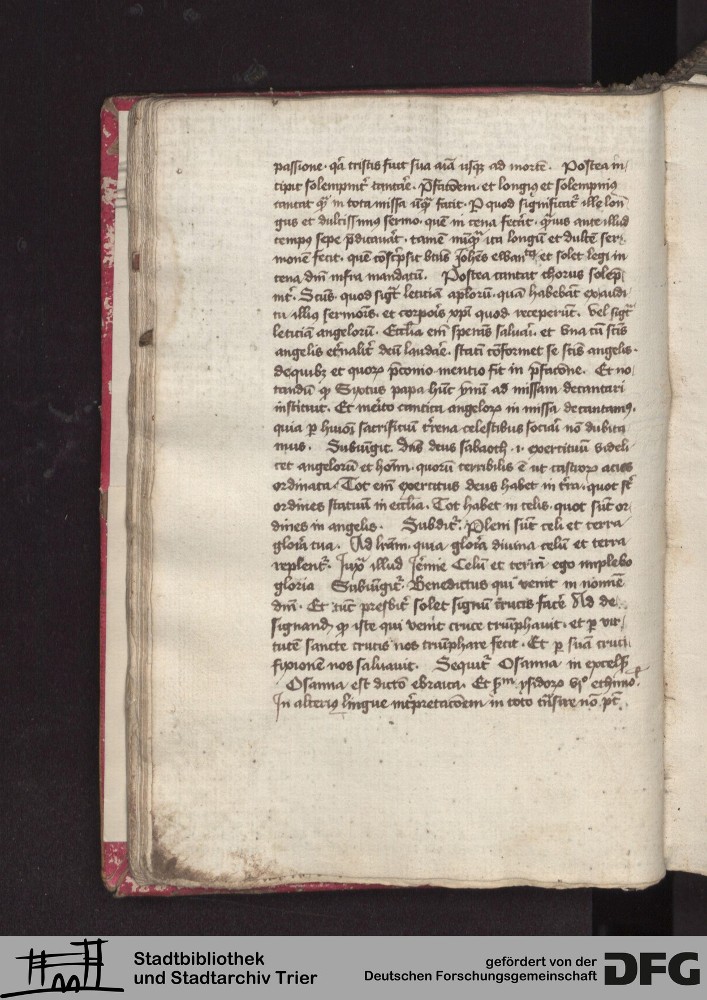 passione · q̄a tristis fuit sua aīa usq̨ ad mortē · Postea in
cipit solempnit᷑ cantar̄e · P̄fatōem · et longiꝰ et solempniꝰ
cantat q̄ in tota missa nūq̄ facit · P quod significat᷑ ille lon
gus et dulcissimus sermo · quē in cena fecit · ante illud
tempꝰ sepe p̄dicauat᷑ · tamē nūq̄ ita longū et dultē ser
monē fecit · quē cōsc̄psit btūs Joh̄es ewanᵗᵃ et solet legi in
cena dm̄ infra mandatū · Postea cantat chorus solēp
nit᷑ · Scūs · quod sigt᷑ leticiā apl̄orū · quā habebāt ex audi
tu illiꝰ sermoīs · et corpoīs xp̄i quod receperūt · vel sigt᷑
leticiā angelorū · Eccl̄ia em̄ sperās saluari · et vna cū sc̄is
angelis et᷑nalit᷑ deū laudar̄e · statī cōformet se sc̄is angelis ·
de quibꝫ et quoꝝ p̄conio mentio fit in p̄facōne · Et no
tandū ꝙ Sixtus papa hūc ymnū ad missam decantari
instituit · Et me᷑ito cantica angeloꝝ in missa decantamꝰ ·
quia p huiōi sacrificiū t᷑rena celestibus sociari nō dubita
mus · Subiūgit · Dn̄s deus sabaoth · i · exercituū videli
cet angelorū et hoīm · quorū terribilis ē ut castroꝝ acies
ordinata · Tot em̄ exercitus deus habet in t᷑ra · quot st᷑
ordines statuū in eccl̄ia · Tot habet in celis · quot sūt or
dines in angelis · Subdit᷑ · Pleni sūt celi et terra
glōia tua · Ad lr̄am · quia glōia diuina celū et terra
replent᷑ · Jux̄ illud Je᷑mie Celū et terrā ego implebo
gloria Subiūgit᷑ · Benedictus qui venit in nomine
dn̄i · Et tūc presbit᷑ solet signū crucis facē Ad de
signand̄ ꝙ iste qui venit cruce triūphauit · et p vir
tutē sancte crucis nos triūphare fecit · Et p suā cruci
fixionē nos saluauit · Sequit᷑ Osanna in excelsꝭ
Osanna est dictō ebraica · Et sᵐ ysidoꝝ ethimo
In alteriꝰ lingue int᷑pretacōem in toto trāsire nō pt᷑
Stadtbibliothek
und Stadtarchiv Trier
gefördert von der
Deutschen Forschungsgemeinschaft
DFG